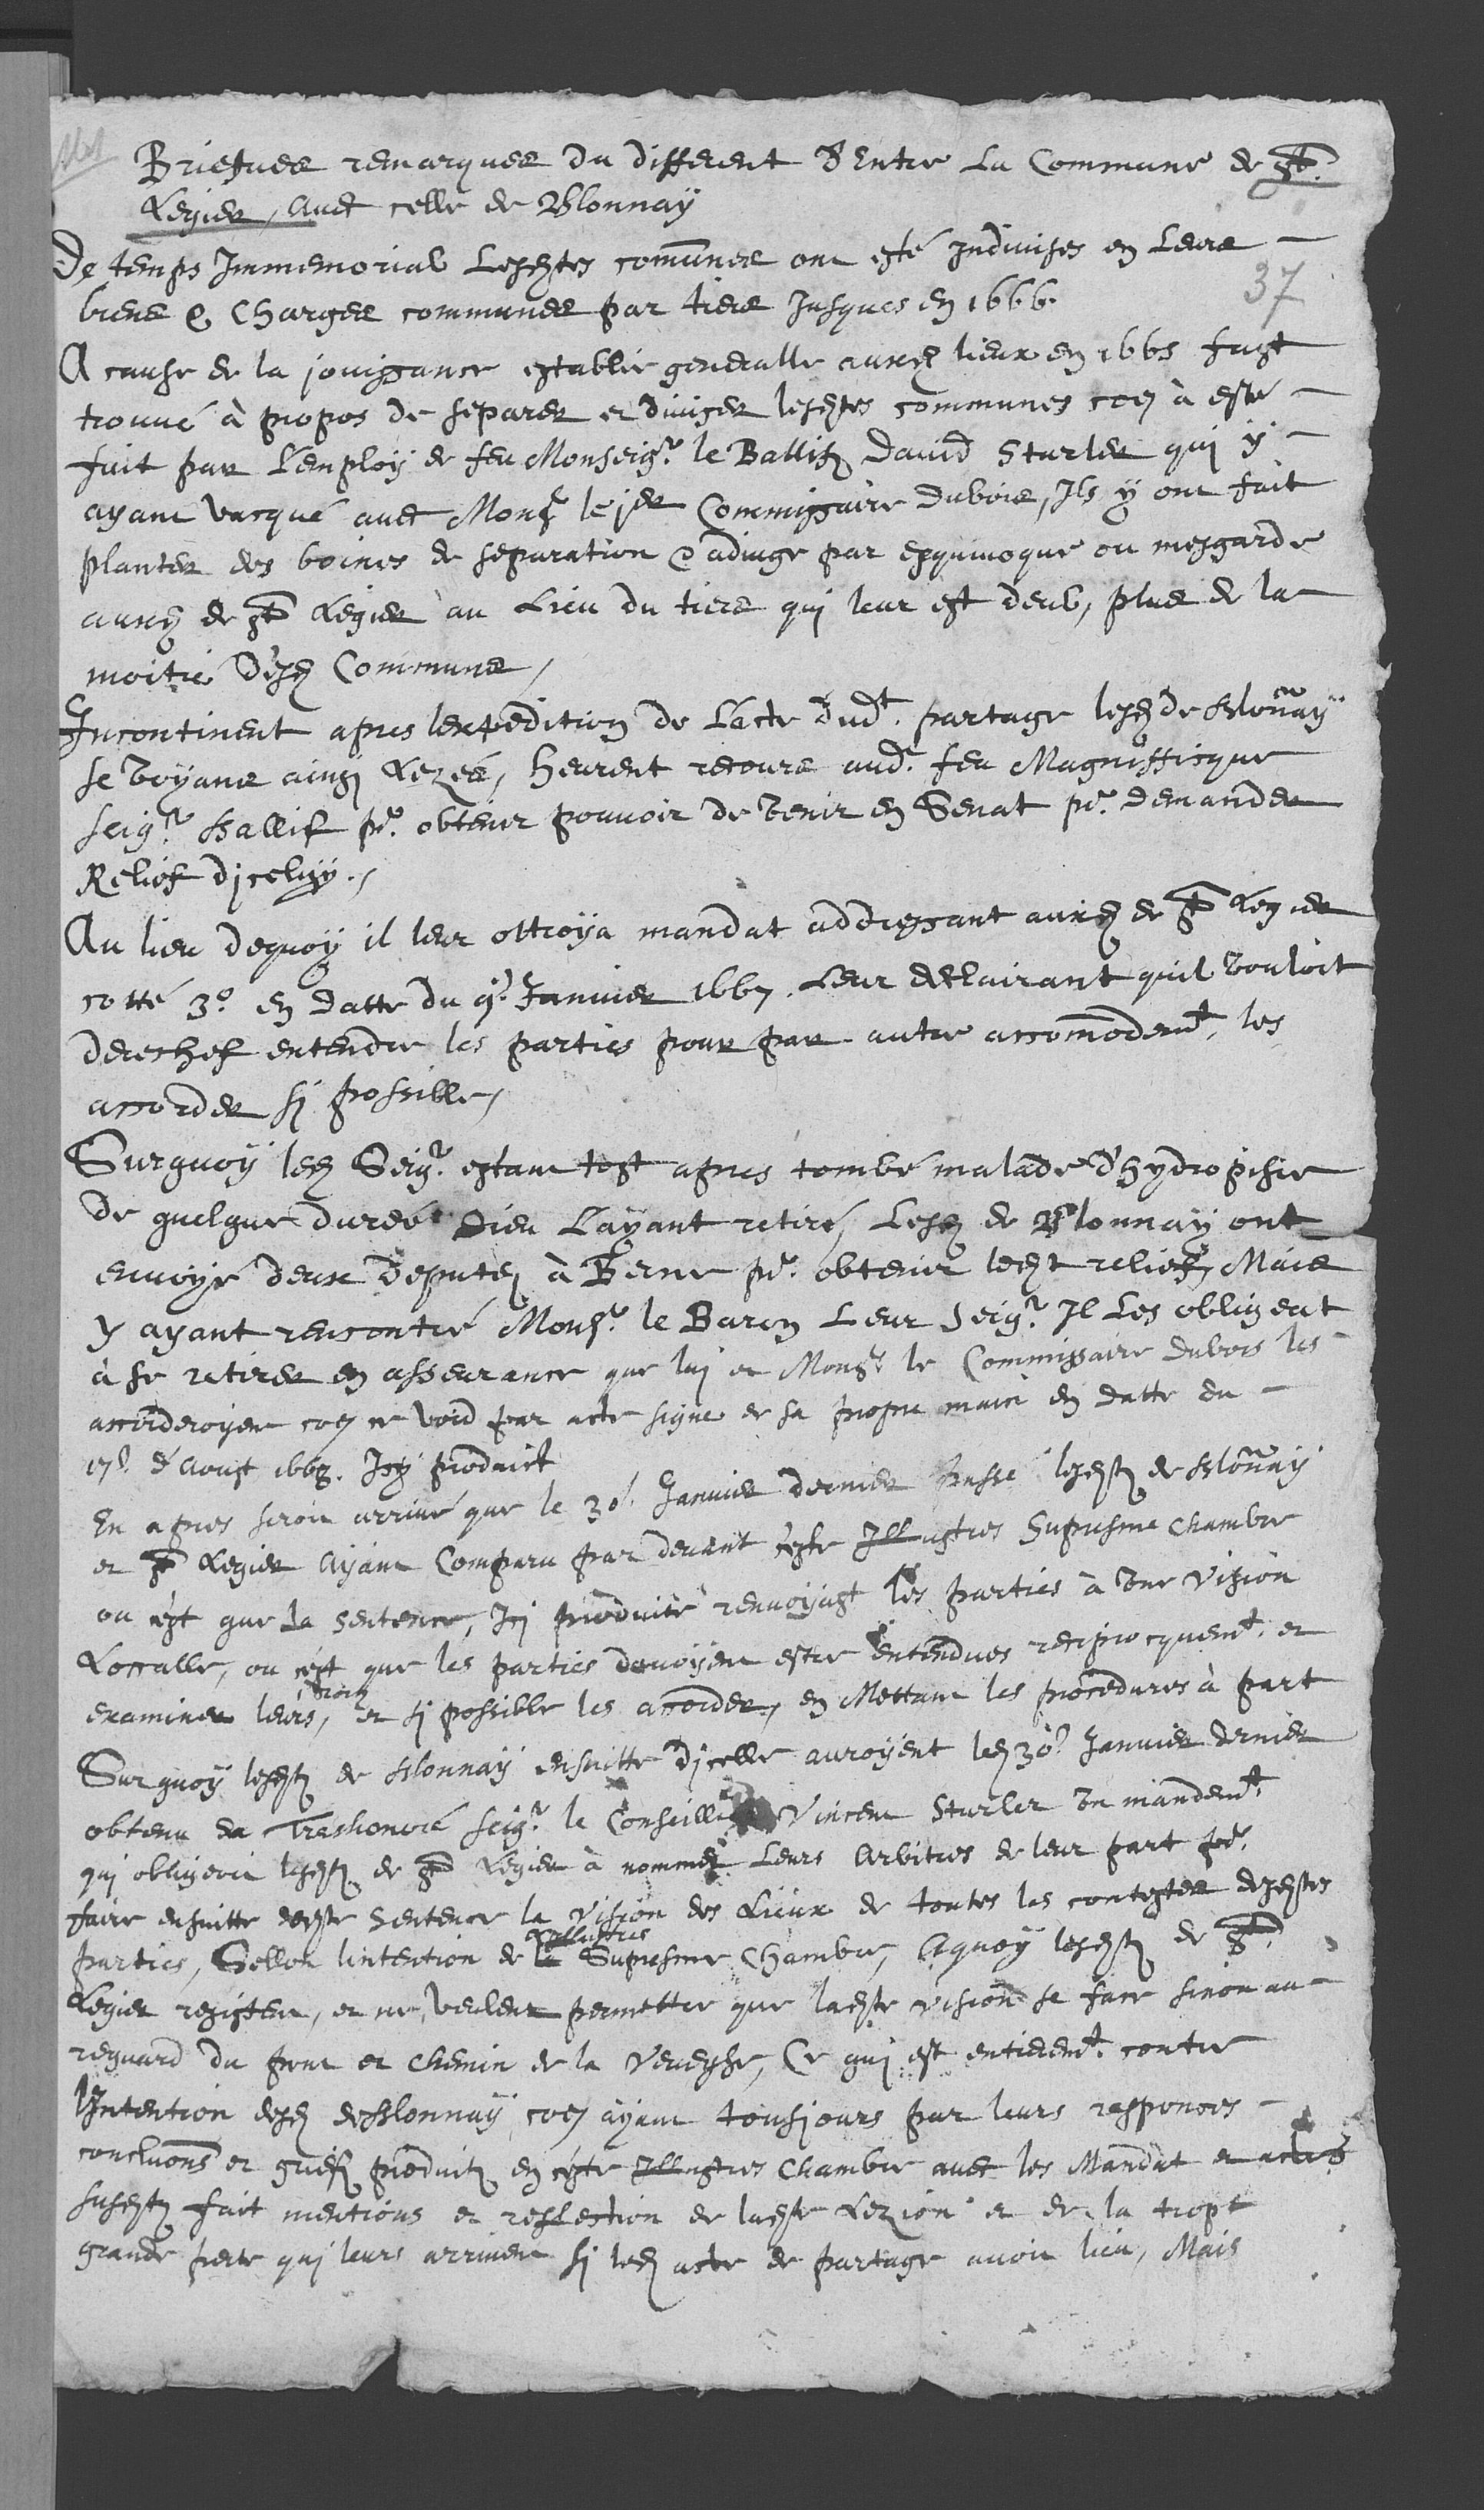 Briefues remarques du different d'Entre La Commune de St.
Legier, auec celle de Blonnay
37
De temps Immemorial Lesdtes comunes ont esté Indiuises en Leurs
biens & Charges communes par tiers Jusques en 1666.
A cause de la jouissance establie generalle auxd lieux en 1665 fust
trouué à propos de separer et diuiser lesdtes communes coe à esté
fait par L'employ de feu Monseigr. le Ballif Dauid Sturler qui y
ayant vacqué auec Monsr le jer Commissaire Dubois, Ils y ont fait
planter des boines de separation & adiuge par esquiuoque ou mesgarde
auxd de St Legier au Lieu du tiers qui leur est deub, plus de la
moitié desd Communs,
Incontinent apres lexpedition de L'acte dudt. partage lesd de Blonnay
se voyans ainsi Lezés, heurent recours aud. feu Magniffique
seigr. Ballif pr. obtenir pouvoir de venir en Senat pr. demander
Relief dicelluy.,
Au lieu dequoy il leur ottroya mandat addressant auxd de St Legier
cotté 3o. en datte du 9e. Januier 1667. Leur declairant quil vouloit
derechef entendre les parties pour par autre accomodemt. les
accorder si possible,
Surquoy led Seigr. estant tost apres tombé malade d'hydropisie
de quelque durée Dieu L'ayant retiré, Lesd de Blonnay ont
enuoyé deux Deputez à Berne pr. obtenir ledt relief, Mais
y ayant rencontré Monsr. le Baron Leur Seigr. Il Les obligeat
à se retirer en asseurance que luj et Monsr le Commissaire Dubois les
accorderoyent coe se void par acte signe de sa propre main en datte du
17e. d'Aoust 1668. Icy produict
En apres seroit arriué que le 30e. Januier dernier passé lesdts de Blonnay
et St Legier Ayant Comparu par deuant ceste Illustres Supresme Chambre
ou est que la sentence, Icj produite renuoyast les parties à vne Vision
Locallle, ou c'est que les parties deuoyent estre entendues reciprocquemt. et
examiner leurs droits, et si possible les accorder, en Mettant les procedures à part
Surquoy lesdts de Blonnay ensuitte dicelle auroyent led 30e. Januier dernier
obtenu du Treshonoré seigr. le Conseiller Vincent Sturler vn mandemt.
qui obligeoit lesdts de St Legier à nommer Leurs Arbitres de leur part pr.
faire ensuitte de ceste Sentence la Vision des Lieux de toutes les contestes desdtes
parties, Sellon lintention de la Illustres Supresme Chambre, Aquoy lesdts de St.
Legier resistent, et ne veulent permettre que ladte Vision se face sinon au
reguard du pont et chemin de la Veueyse, Ce qui est entieremt. contre
lIntention desd de Blonnay, coe ayant tousjours par leurs responces
conclusions et griefs produits en ceste Illustres Chambre auec les Mandat et actes
susdts fait mentions et reflection de ladte Lezion et de la tropt
grande perte qui leurs arriuent si led acte de partage auoit lieu, Mais